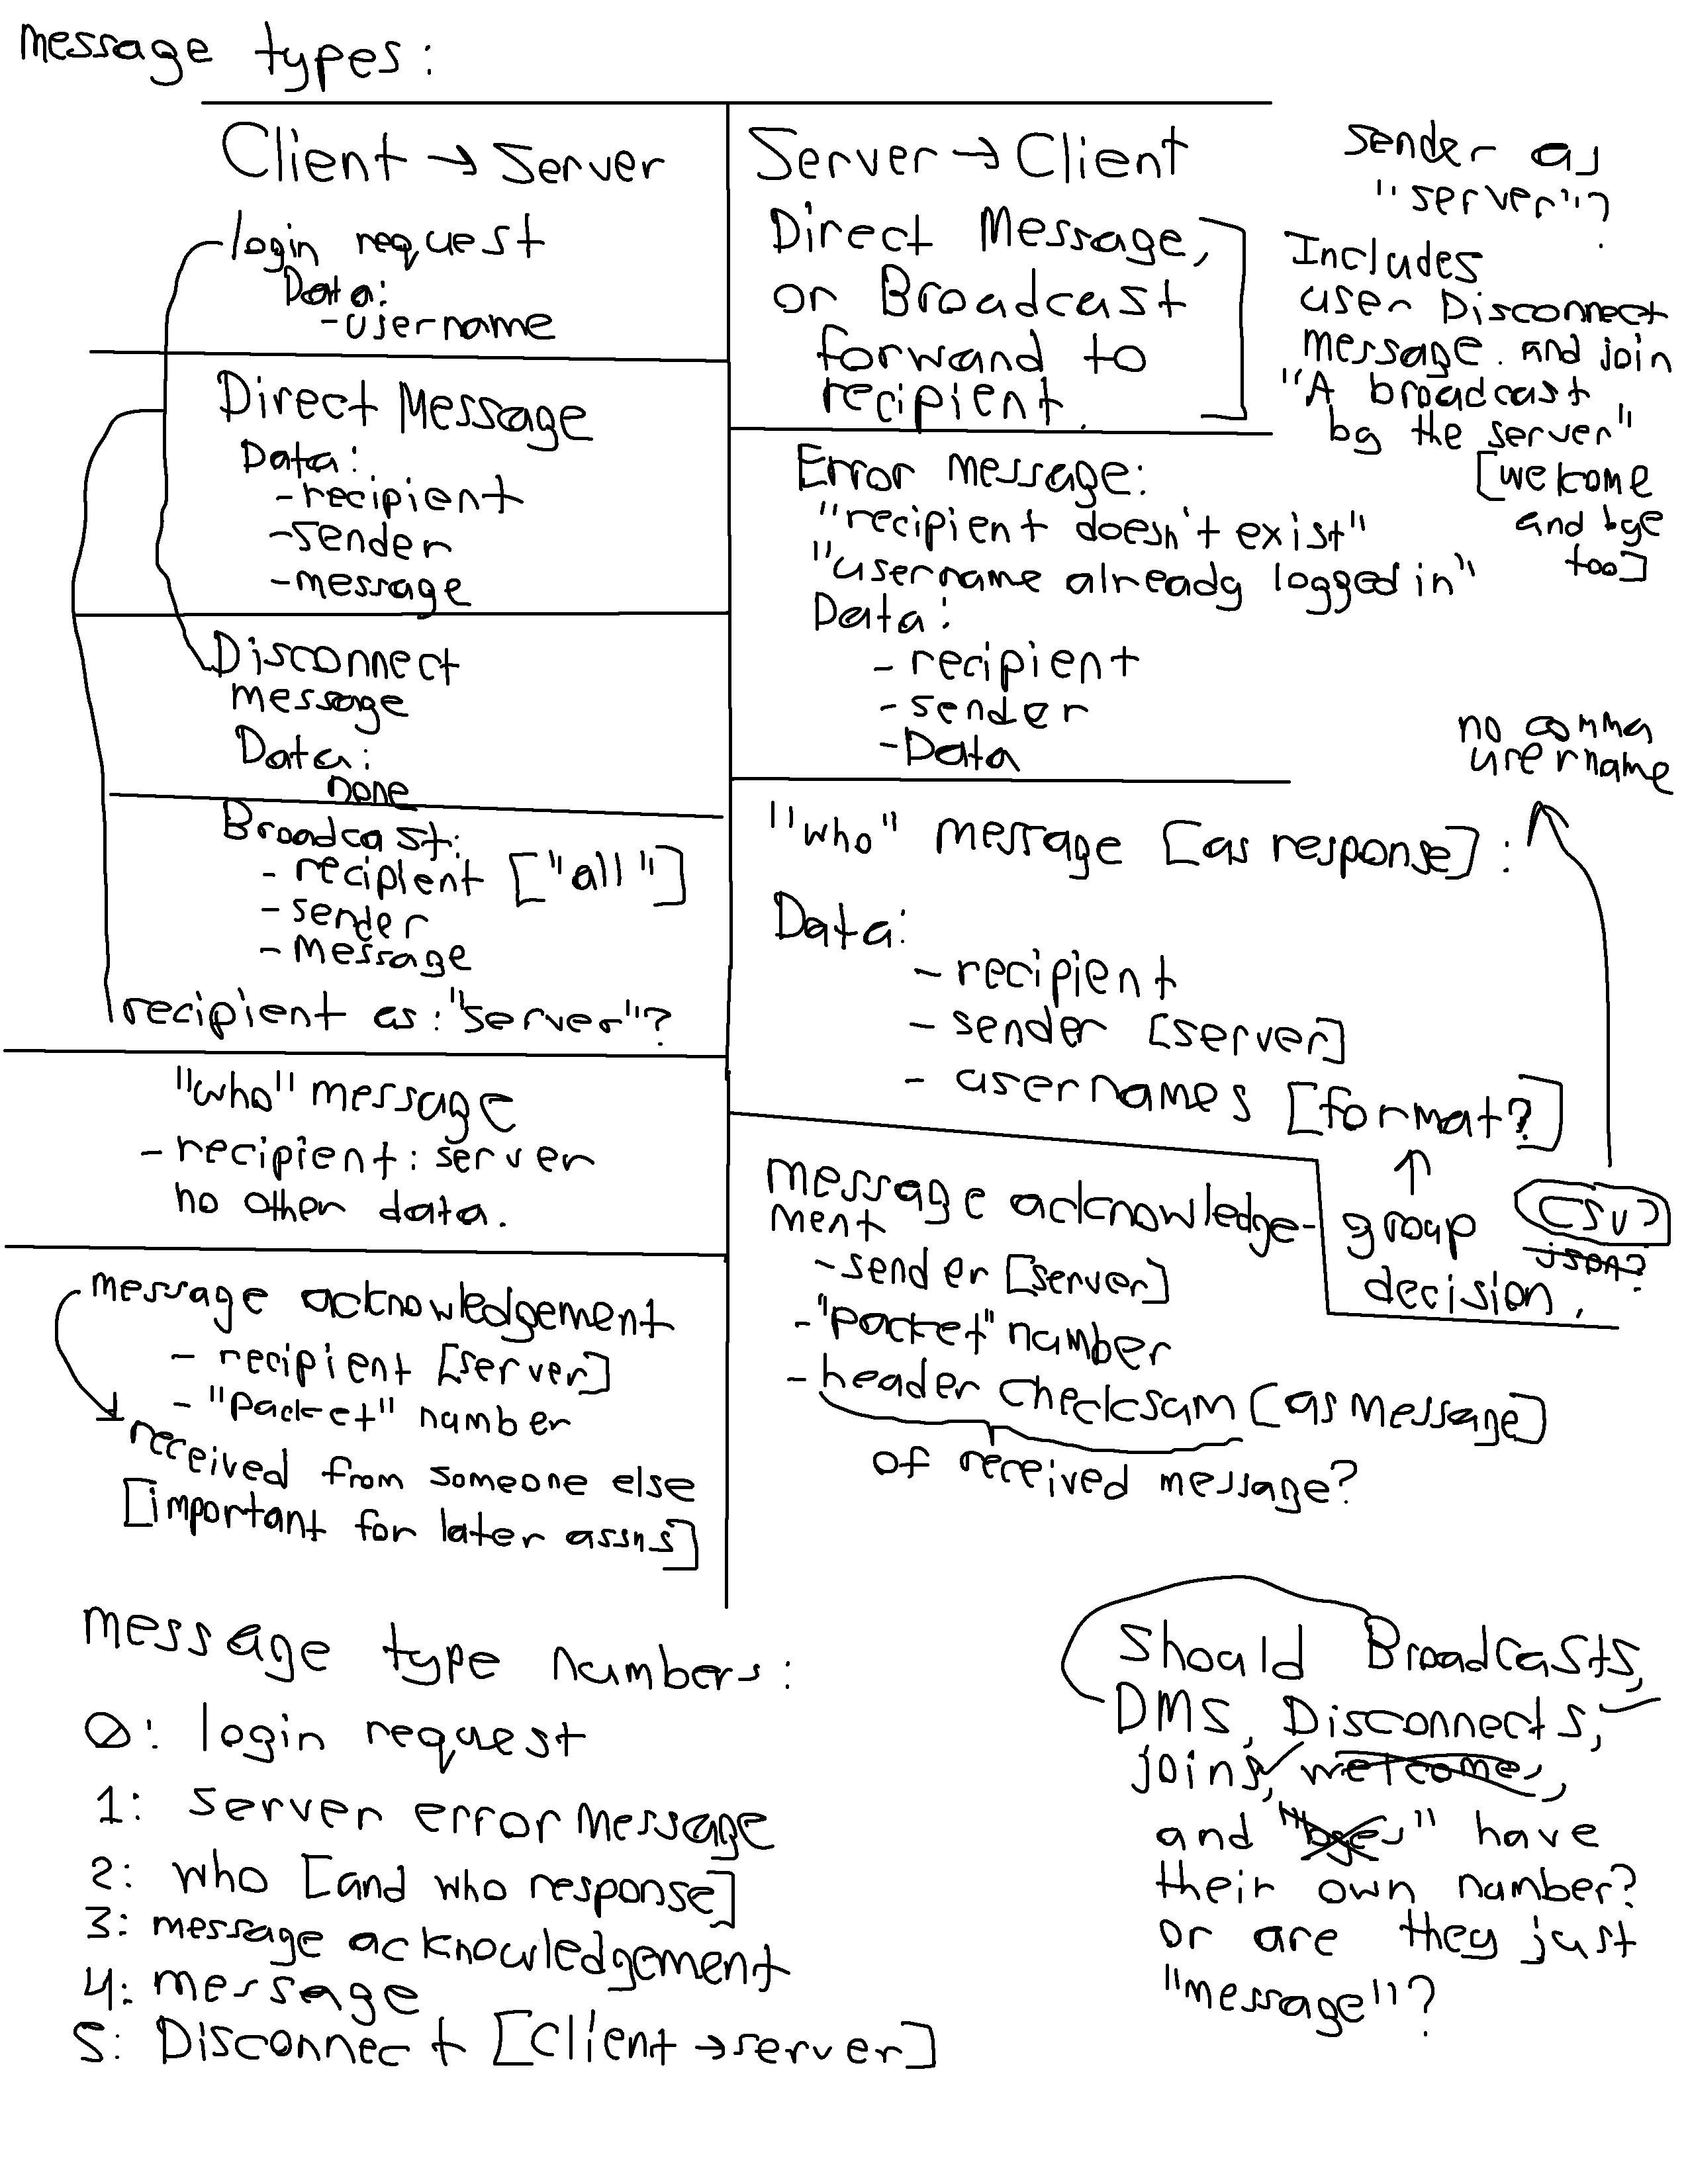 message types:
Client → Server
login request
Data:
-username
Direct Message
Data:
-recipient
-sender
-message
Disconnect
message
Data:
none
Broadcast:
- recipient ["all"]
- sender
- message
recipient as: "server"?
"who" message
- recipient: server
no other data.
message acknowledgement
- recipient [server]
- "packet" number
received from someone else
[important for later assns]
Server → Client
Direct Message,
or Broadcast
forward to
recipient.
sender as
"server"?
Includes
user Disconnect
message. and join
"A broadcast
by the server"
[welcome
and bye
too]
Error message:
"recipient doesn't exist"
"username already logged in"
Data:
- recipient
- sender
- Data
no comma
username
"who" message [as response]:
Data:
- recipient
- sender [server]
- usernames [format?]
↑
group
decision.
CSV?
json?
message acknowledge-
ment
- sender [server]
- "packet" number
- header checksum [as message]
of received message?
message type numbers:
0: login request
1: server error message
2: who [and who response]
3: message acknowledgement
4: message
5: Disconnect [client → server]
Should Broadcasts,
DMS, Disconnects,
joins, welcomes,
and "byes" have
their own number?
or are they just
"message"?